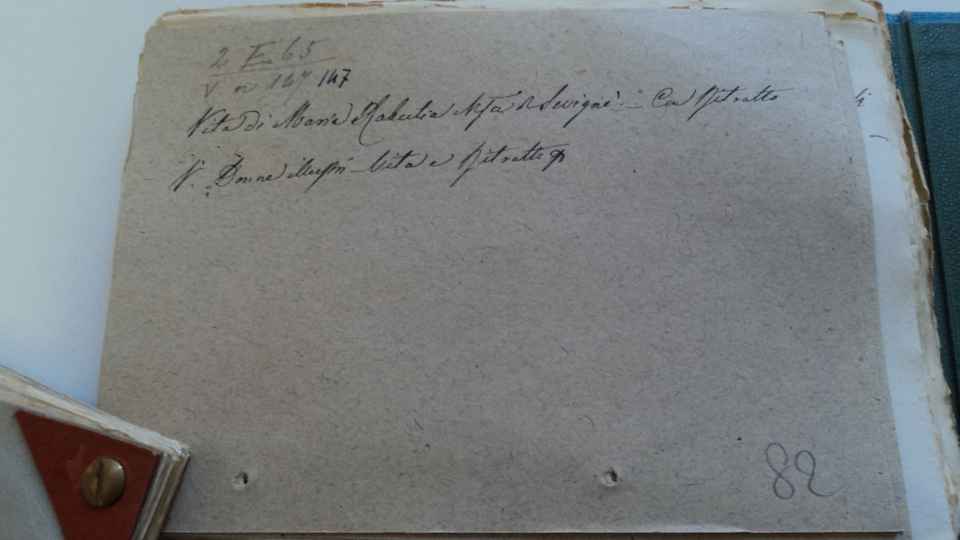 2 E 65
V n 147 147
Vita di Maria Rabutin de Sevigné - Con Ritratto
V. Donne illustri - Vita e Ritratti
82